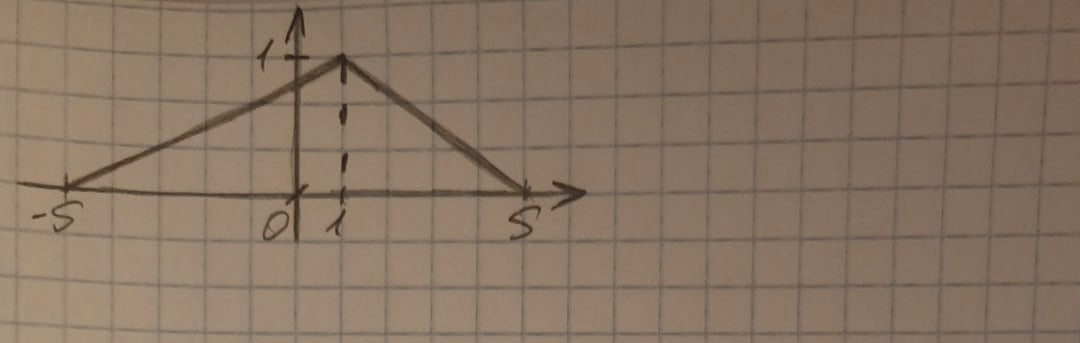 1
-5 0 1 5